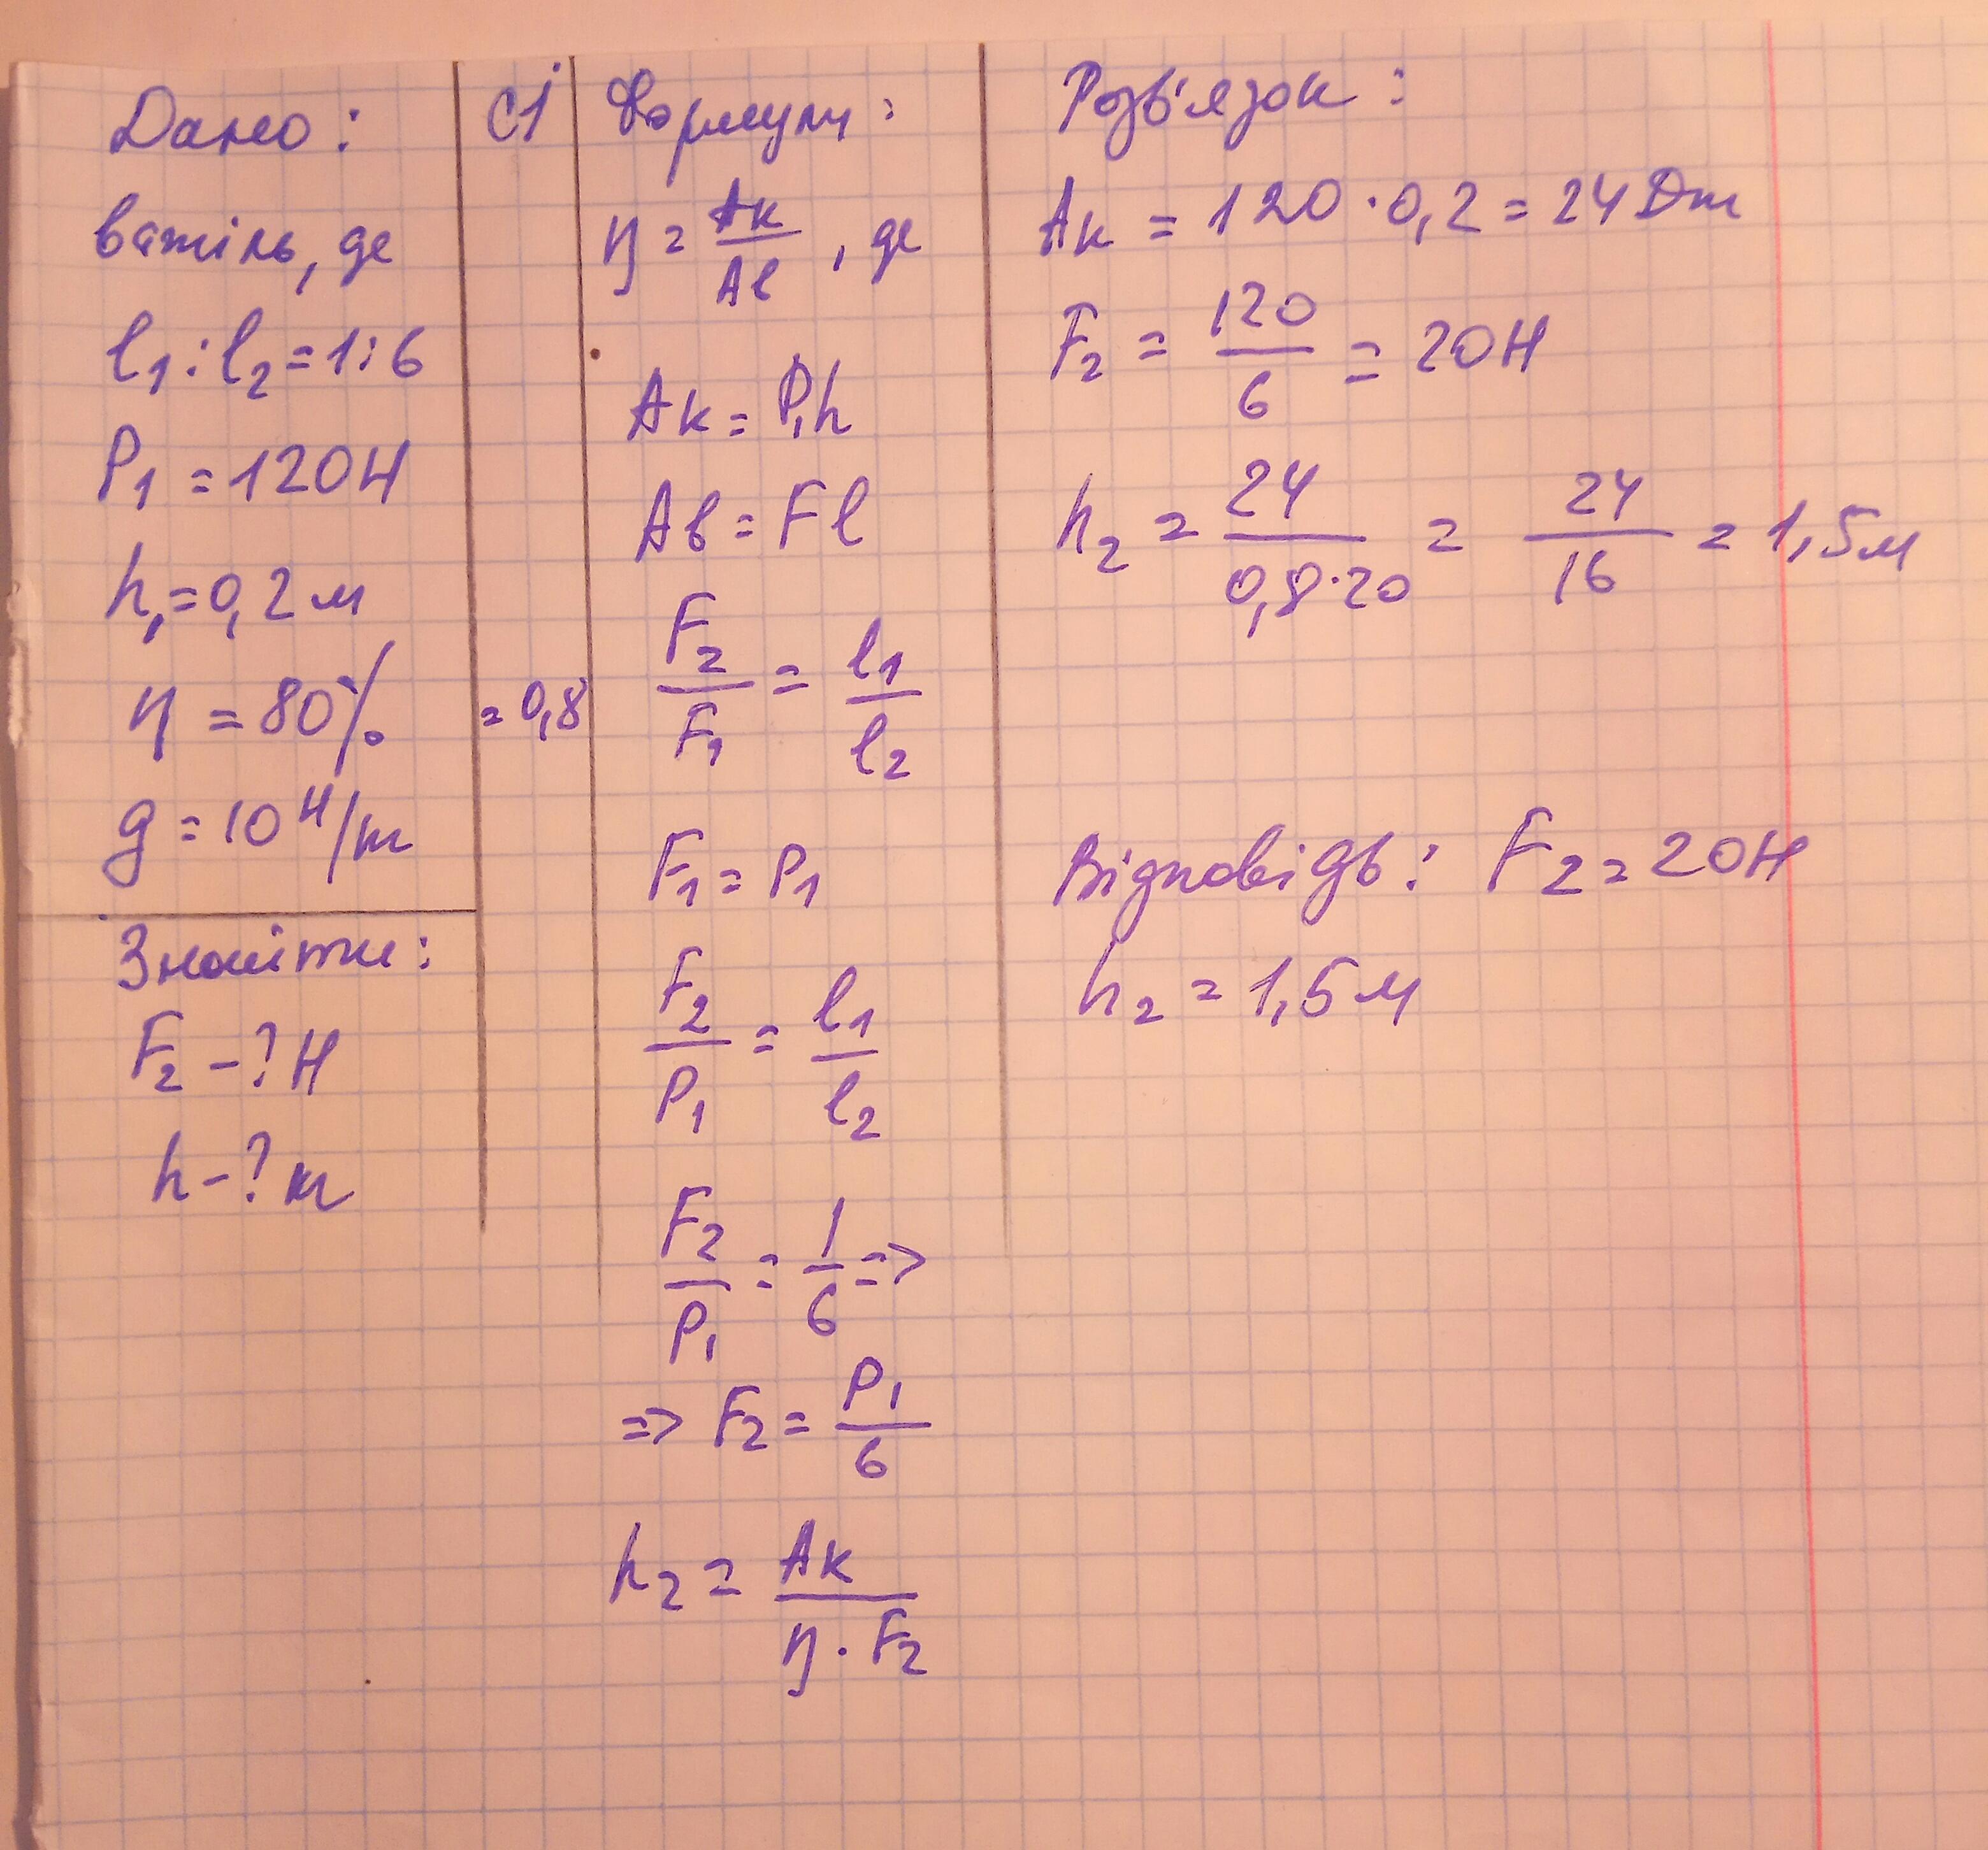 Дано:
важіль, де
l₁:l₂=1:6
P₁=120Н
h₁=0,2м
η=80%
g=10Н/м
Знайти:
F₂-?Н
h-?м
СІ
=0,8
Формули:
η=Aк/Aв, де
Aк=P₁h
Aв=Fl
F₂/F₁=l₁/l₂
F₁=P₁
F₂/P₁=l₁/l₂
F₂/P₁=1/6=>
=>F₂=P₁/6
h₂=Aк/(η·F₂)
Розв'язок:
Aк=120·0,2=24Дж
F₂=120/6=20Н
h₂=24/(0,8·20)=24/16=1,5м
Відповідь: F₂=20Н
h₂=1,5м